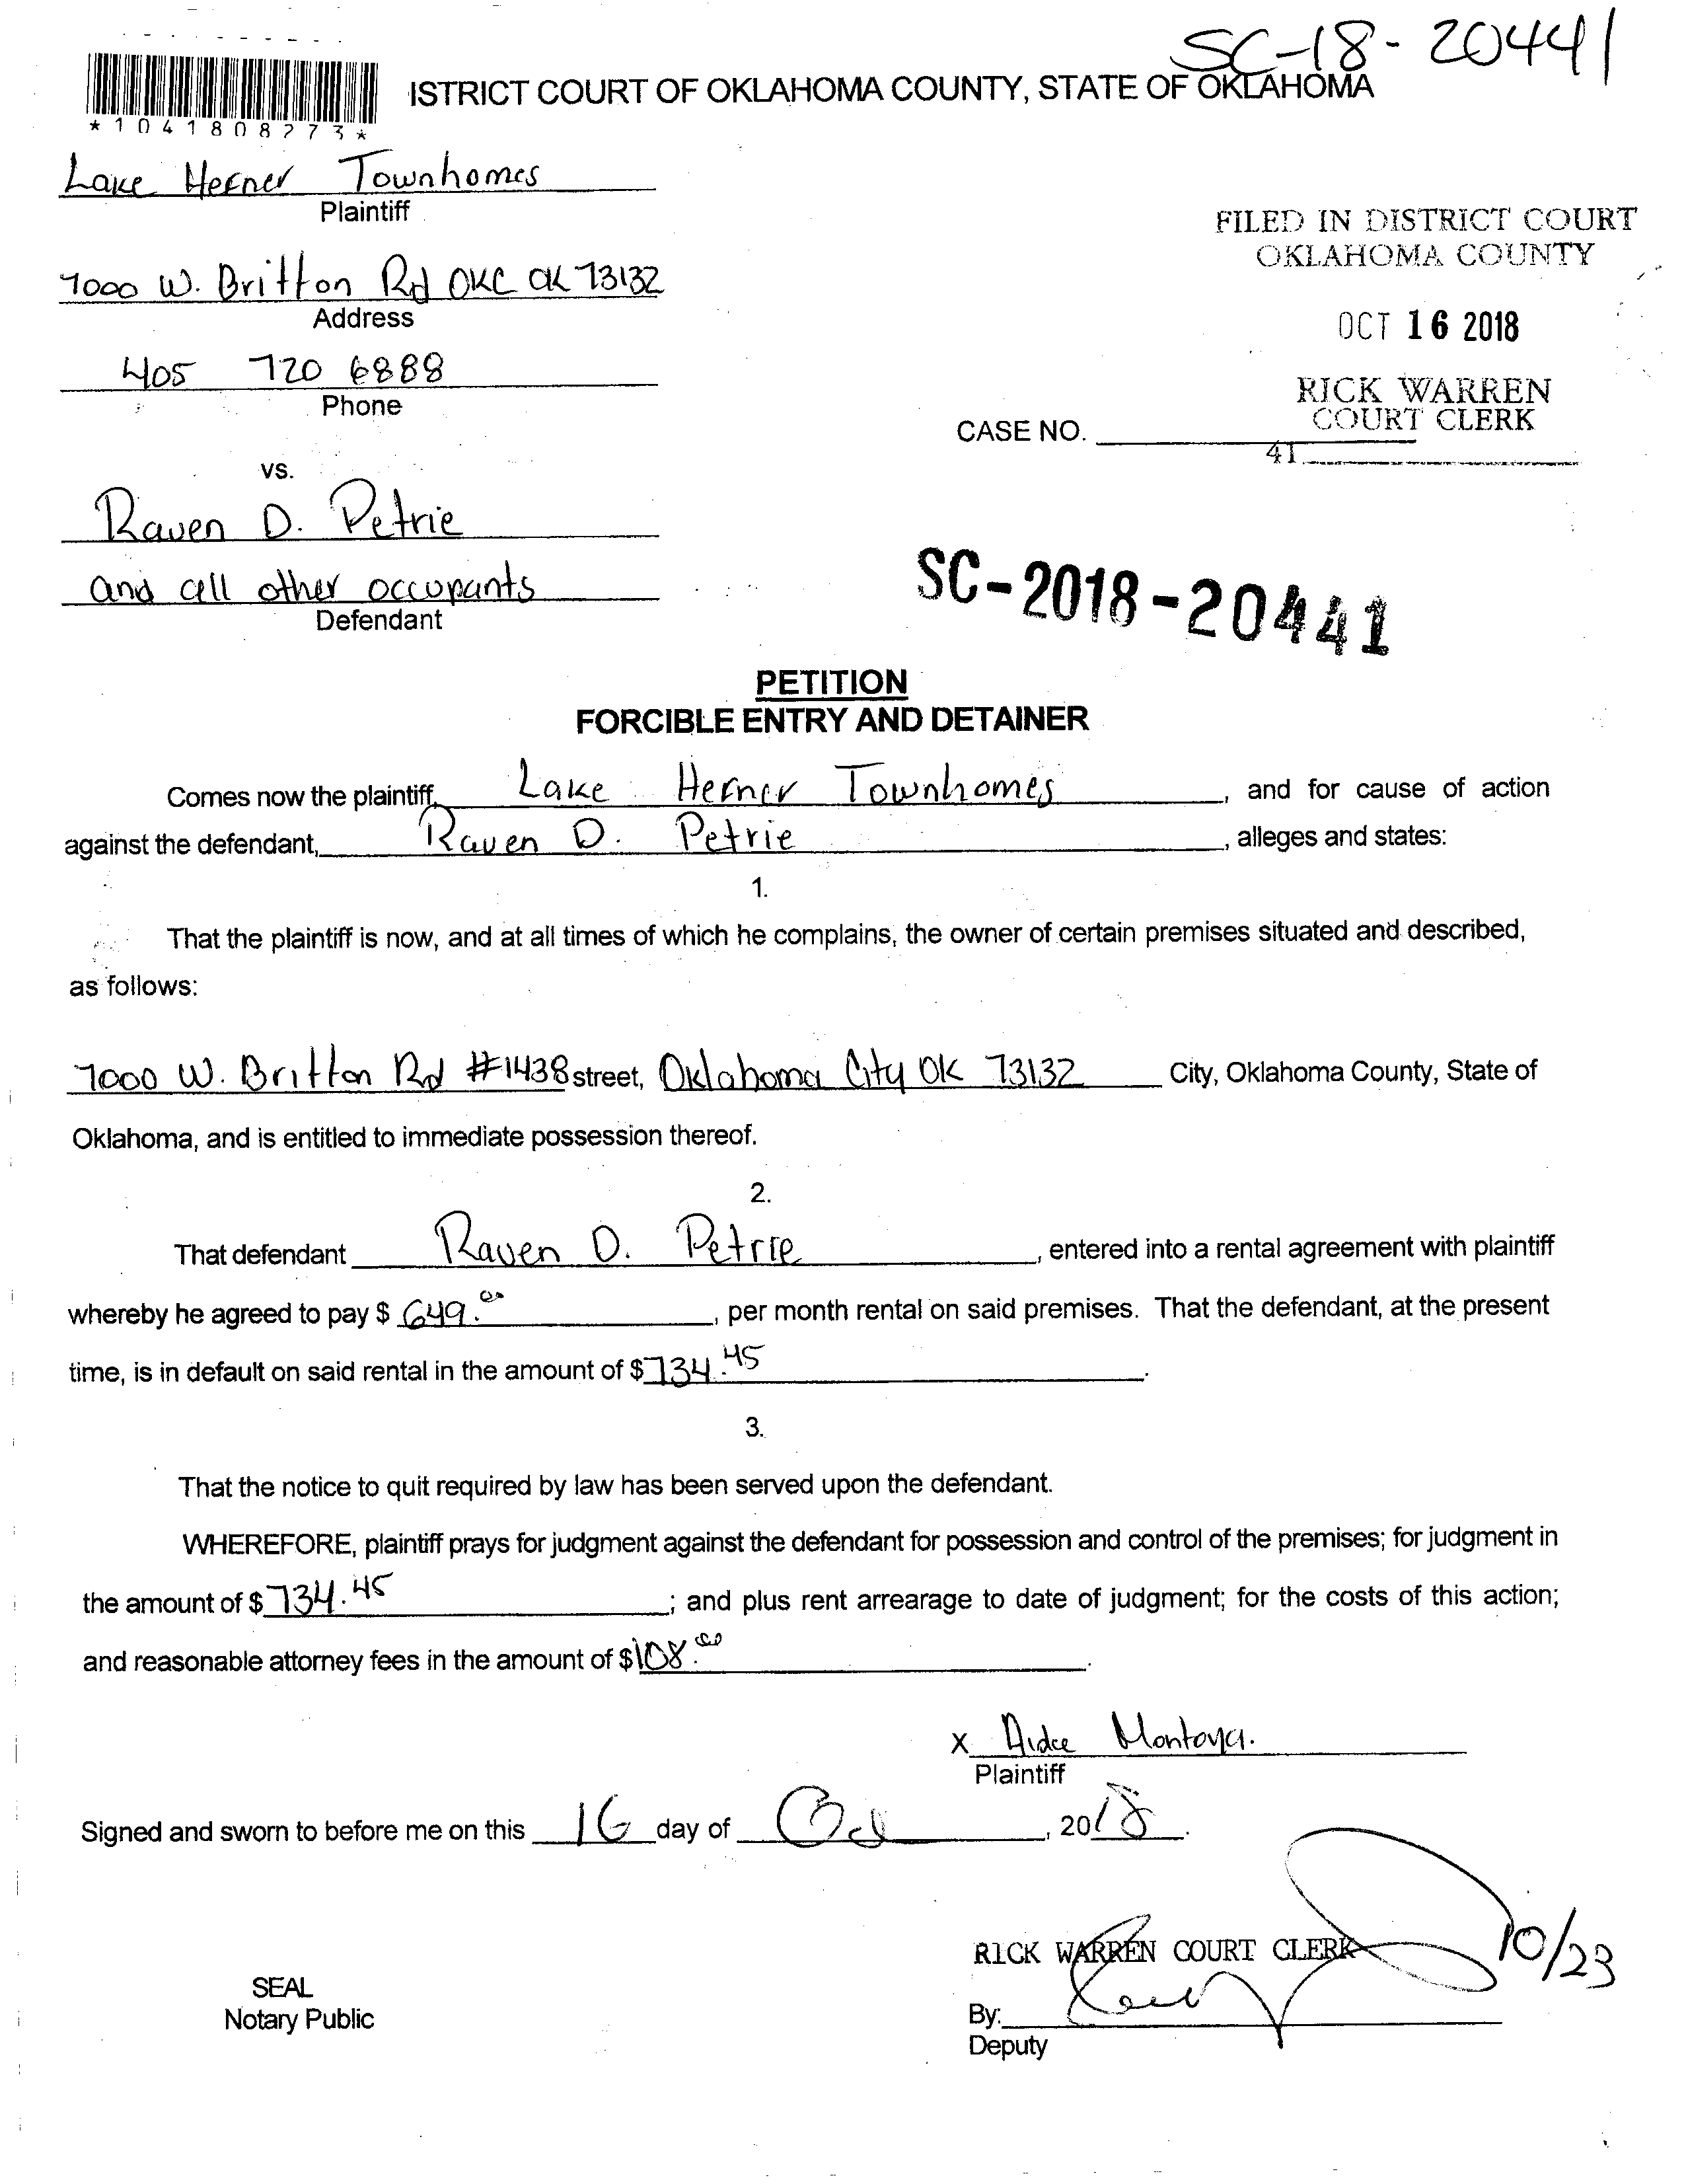 SC-18-20441
ISTRICT COURT OF OKLAHOMA COUNTY, STATE OF OKLAHOMA
*1041808273*
Lake Hefner Townhomes
Plaintiff
FILED IN DISTRICT COURT
OKLAHOMA COUNTY
7000 W. Britton Rd OKC OK 73132
Address
OCT 16 2018
405 720 6888
Phone
RICK WARREN
COURT CLERK
CASE NO.
41
vs.
Raven D. Petrie
and all other occupants
Defendant
SC-2018-20441
PETITION
FORCIBLE ENTRY AND DETAINER
Comes now the plaintiff, Lake Hefner Townhomes, and for cause of action
against the defendant, Raven D. Petrie, alleges and states:
1.
That the plaintiff is now, and at all times of which he complains, the owner of certain premises situated and described,
as follows:
7000 W. Britton Rd #1438 street, Oklahoma City OK 73132 City, Oklahoma County, State of
Oklahoma, and is entitled to immediate possession thereof.
2.
That defendant Raven D. Petrie, entered into a rental agreement with plaintiff
whereby he agreed to pay $ 649.00, per month rental on said premises. That the defendant, at the present
time, is in default on said rental in the amount of $ 734.45.
3.
That the notice to quit required by law has been served upon the defendant.
WHEREFORE, plaintiff prays for judgment against the defendant for possession and control of the premises; for judgment in
the amount of $ 734.45; and plus rent arrearage to date of judgment; for the costs of this action;
and reasonable attorney fees in the amount of $ 108.00.
X Aidee Montoya.
Plaintiff
Signed and sworn to before me on this 16 day of Oct, 2018.
RICK WARREN COURT CLERK
10/23
SEAL
Notary Public
By:
Deputy